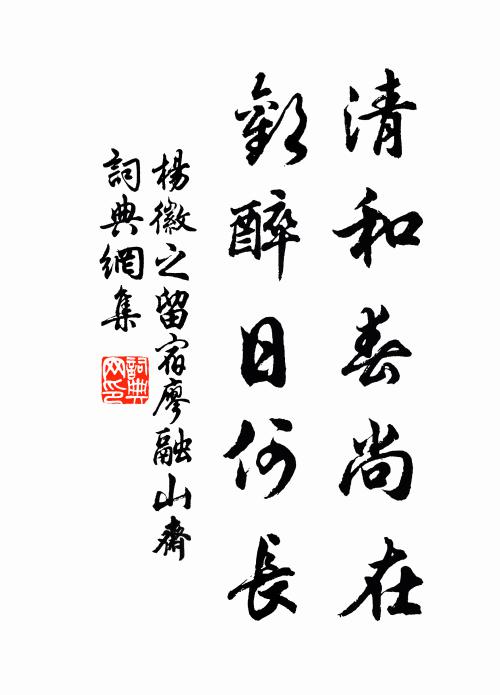 清和春尚在
歡醉日何長
楊徽之留宿廖融山齋
詞典網集
詞典
网印